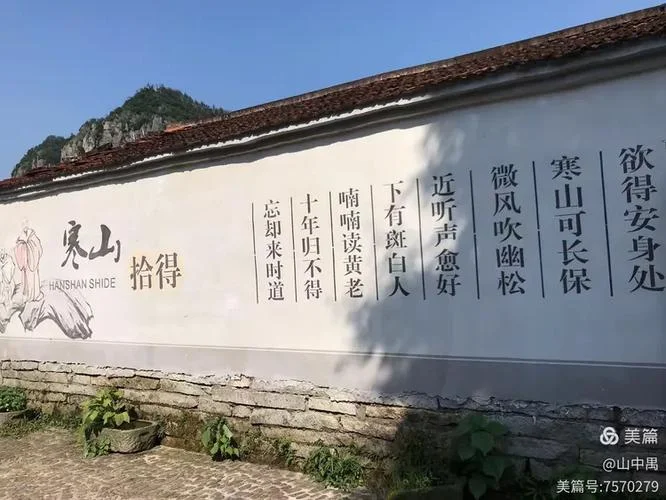 欲得安身处
寒山可长保
微风吹幽松
近听声愈好
下有斑白人
喃喃读黄老
十年归不得
忘却来时道
寒山
拾得
HANSHAN SHIDE
美篇
@山中禺
美篇号:7570279